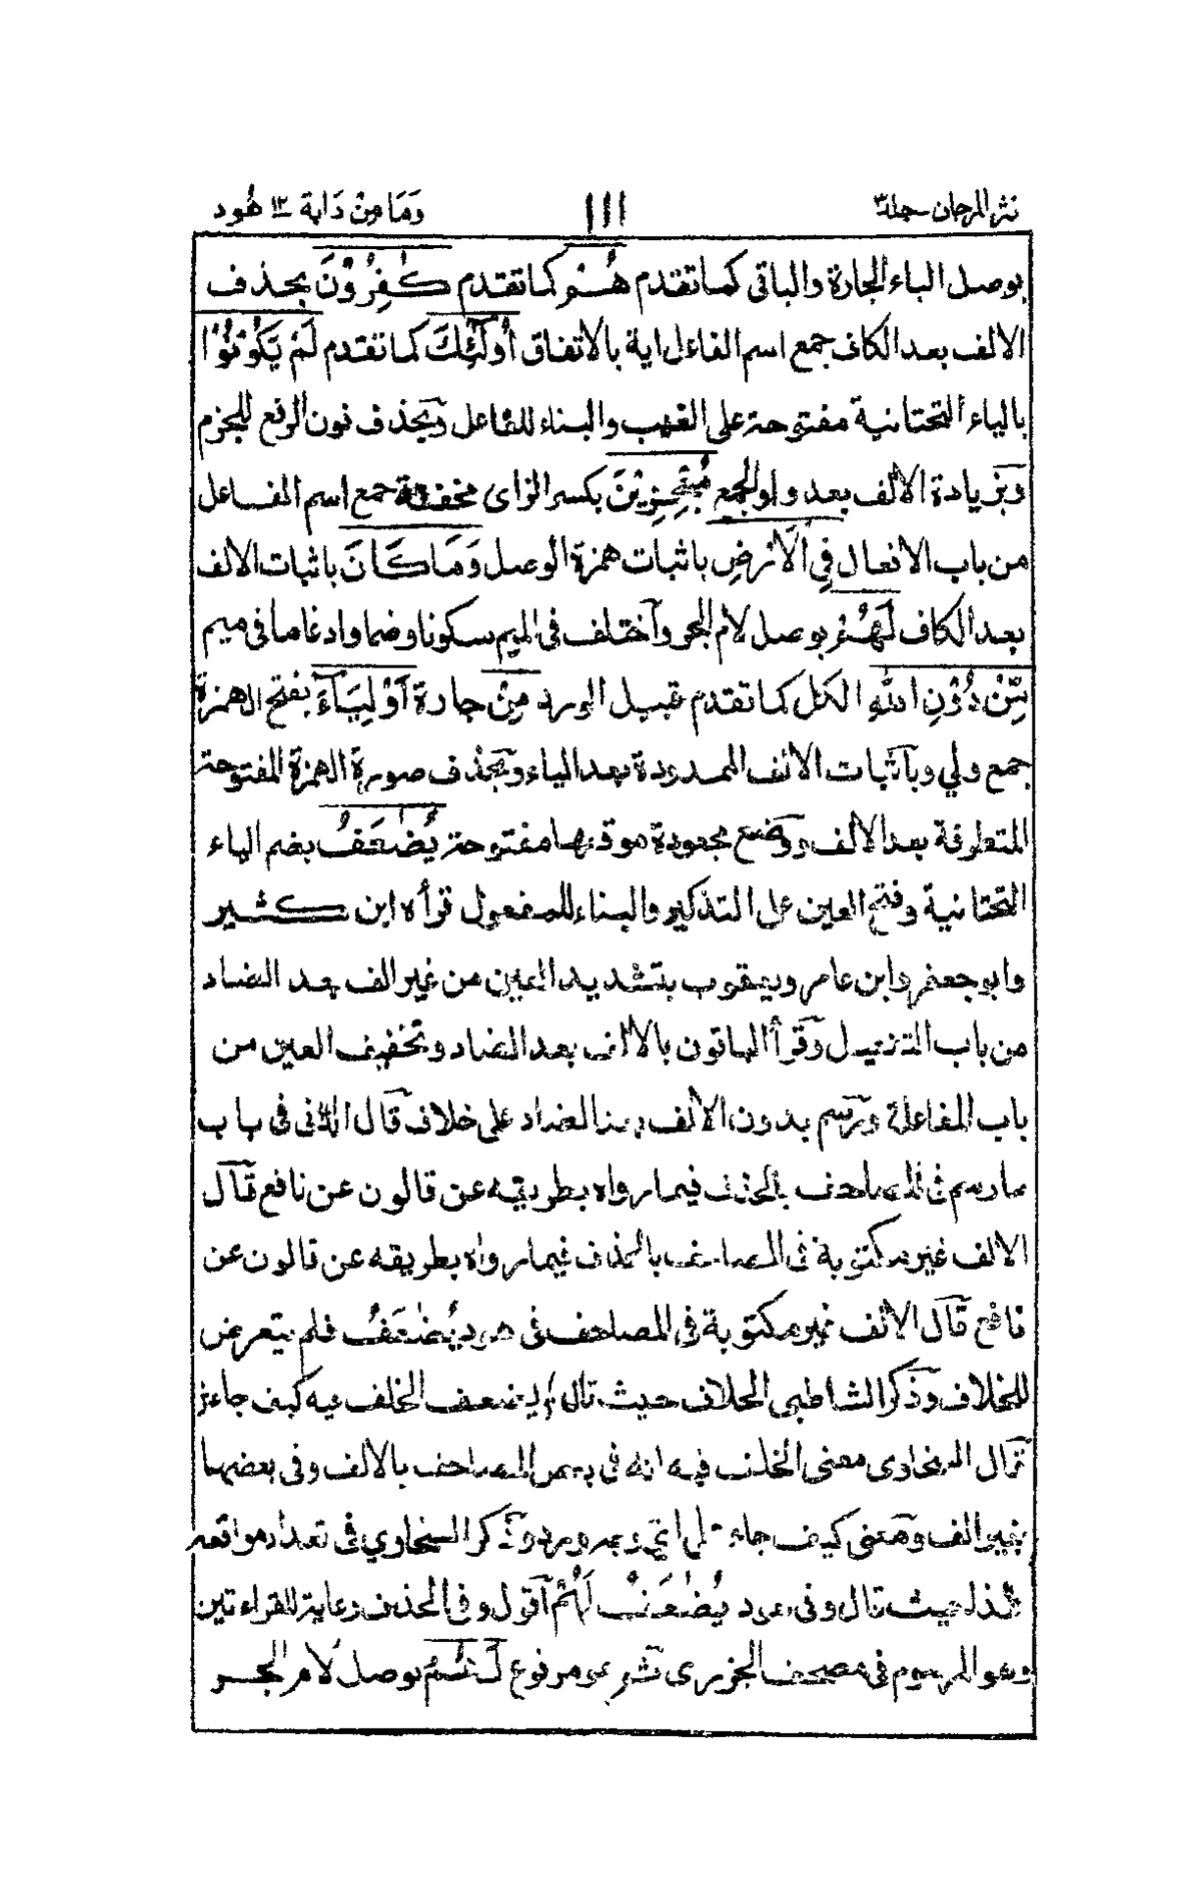 نثر المرجان - جلد ٣
١١١
وَمَا مِنْ دَابة ١٢ هُود
بوصل الباء الجارة والباقي كما تقدم هُمْ كما تقدم كٰفِرُوْنَ بحذف
الالف بعد الكاف جمع اسم الفاعل اية بالاتفاق أُولٰئِكَ كما تقدم لَمْ يَكُوْنُوْا
بالياء التحتانية مفتوحة على الغيب والبناء للفاعل وبحذف نون الرفع للجزم
وبزيادة الالف بعد واو الجمع مُعْجِزِيْنَ بكسر الزاى مخففة جمع اسم الفاعل
من باب الافعال فِي الْاَرْضِ باثبات همزة الوصل وَمَا كَانَ باثبات الالف
بعد الكاف لَهُمْ بوصل لام الجر وآختلف فى الميم سكونا وضما وادغاما فى ميم
مِّنْ دُوْنِ اللّٰهِ الكل كما تقدم قبيل الورد مِنْ جارة اَوْلِيَآءَ بفتح الهمزة
جمع ولي وبآثبات الالف الممدودة بعد الياء وبحذف صورة الهمزة المفتوحة
المتطرفة بعد الالف ووضع مجعودة موقعها مفتوحة يُضٰعَفُ بضم الياء
التحتانية وفتح العين على التذكير والبناء للمفعول قرأه ابن كثير
وابو جعفر وابن عامر ويعقوب بتشديد العين من غير الف بعد الضاد
من باب التفعيل وقرأ الباقون بالالف بعد الضاد وتخفيف العين من
باب المفاعلة ورسم بدون الالف بعد الضاد على خلاف قال الدانى فى باب
ما رسم فى المصاحف بالحذف فيما رواه بطريقه عن قالون عن نافع قال
الالف غير مكتوبة فى المصاحف بالحذف فيما رواه بطريقه عن قالون عن
نافع قال الالف غير مكتوبة فى المصاحف فى هود يُضٰعَفُ فلم يتعرض
للخلاف وذكر الشاطبى الخلاف حيث قال يضعف الخلف فيه كيف جاء
قال السخاوى معنى الخلف فيه انه فى بعض المصاحف بالالف وفى بعضها
بغير الف ومعنى كيف جاء وذكر السخاوي فى تعداد مواقعه
هذا حيث قال وفى هود يُضٰعَفُ لَهُمْ آقول وفى الحذف رعاية للقراءتين
وهو المرسوم فى مصحف الجزرى ثم هو مرفوع لَهُمُ بوصل لام الجر